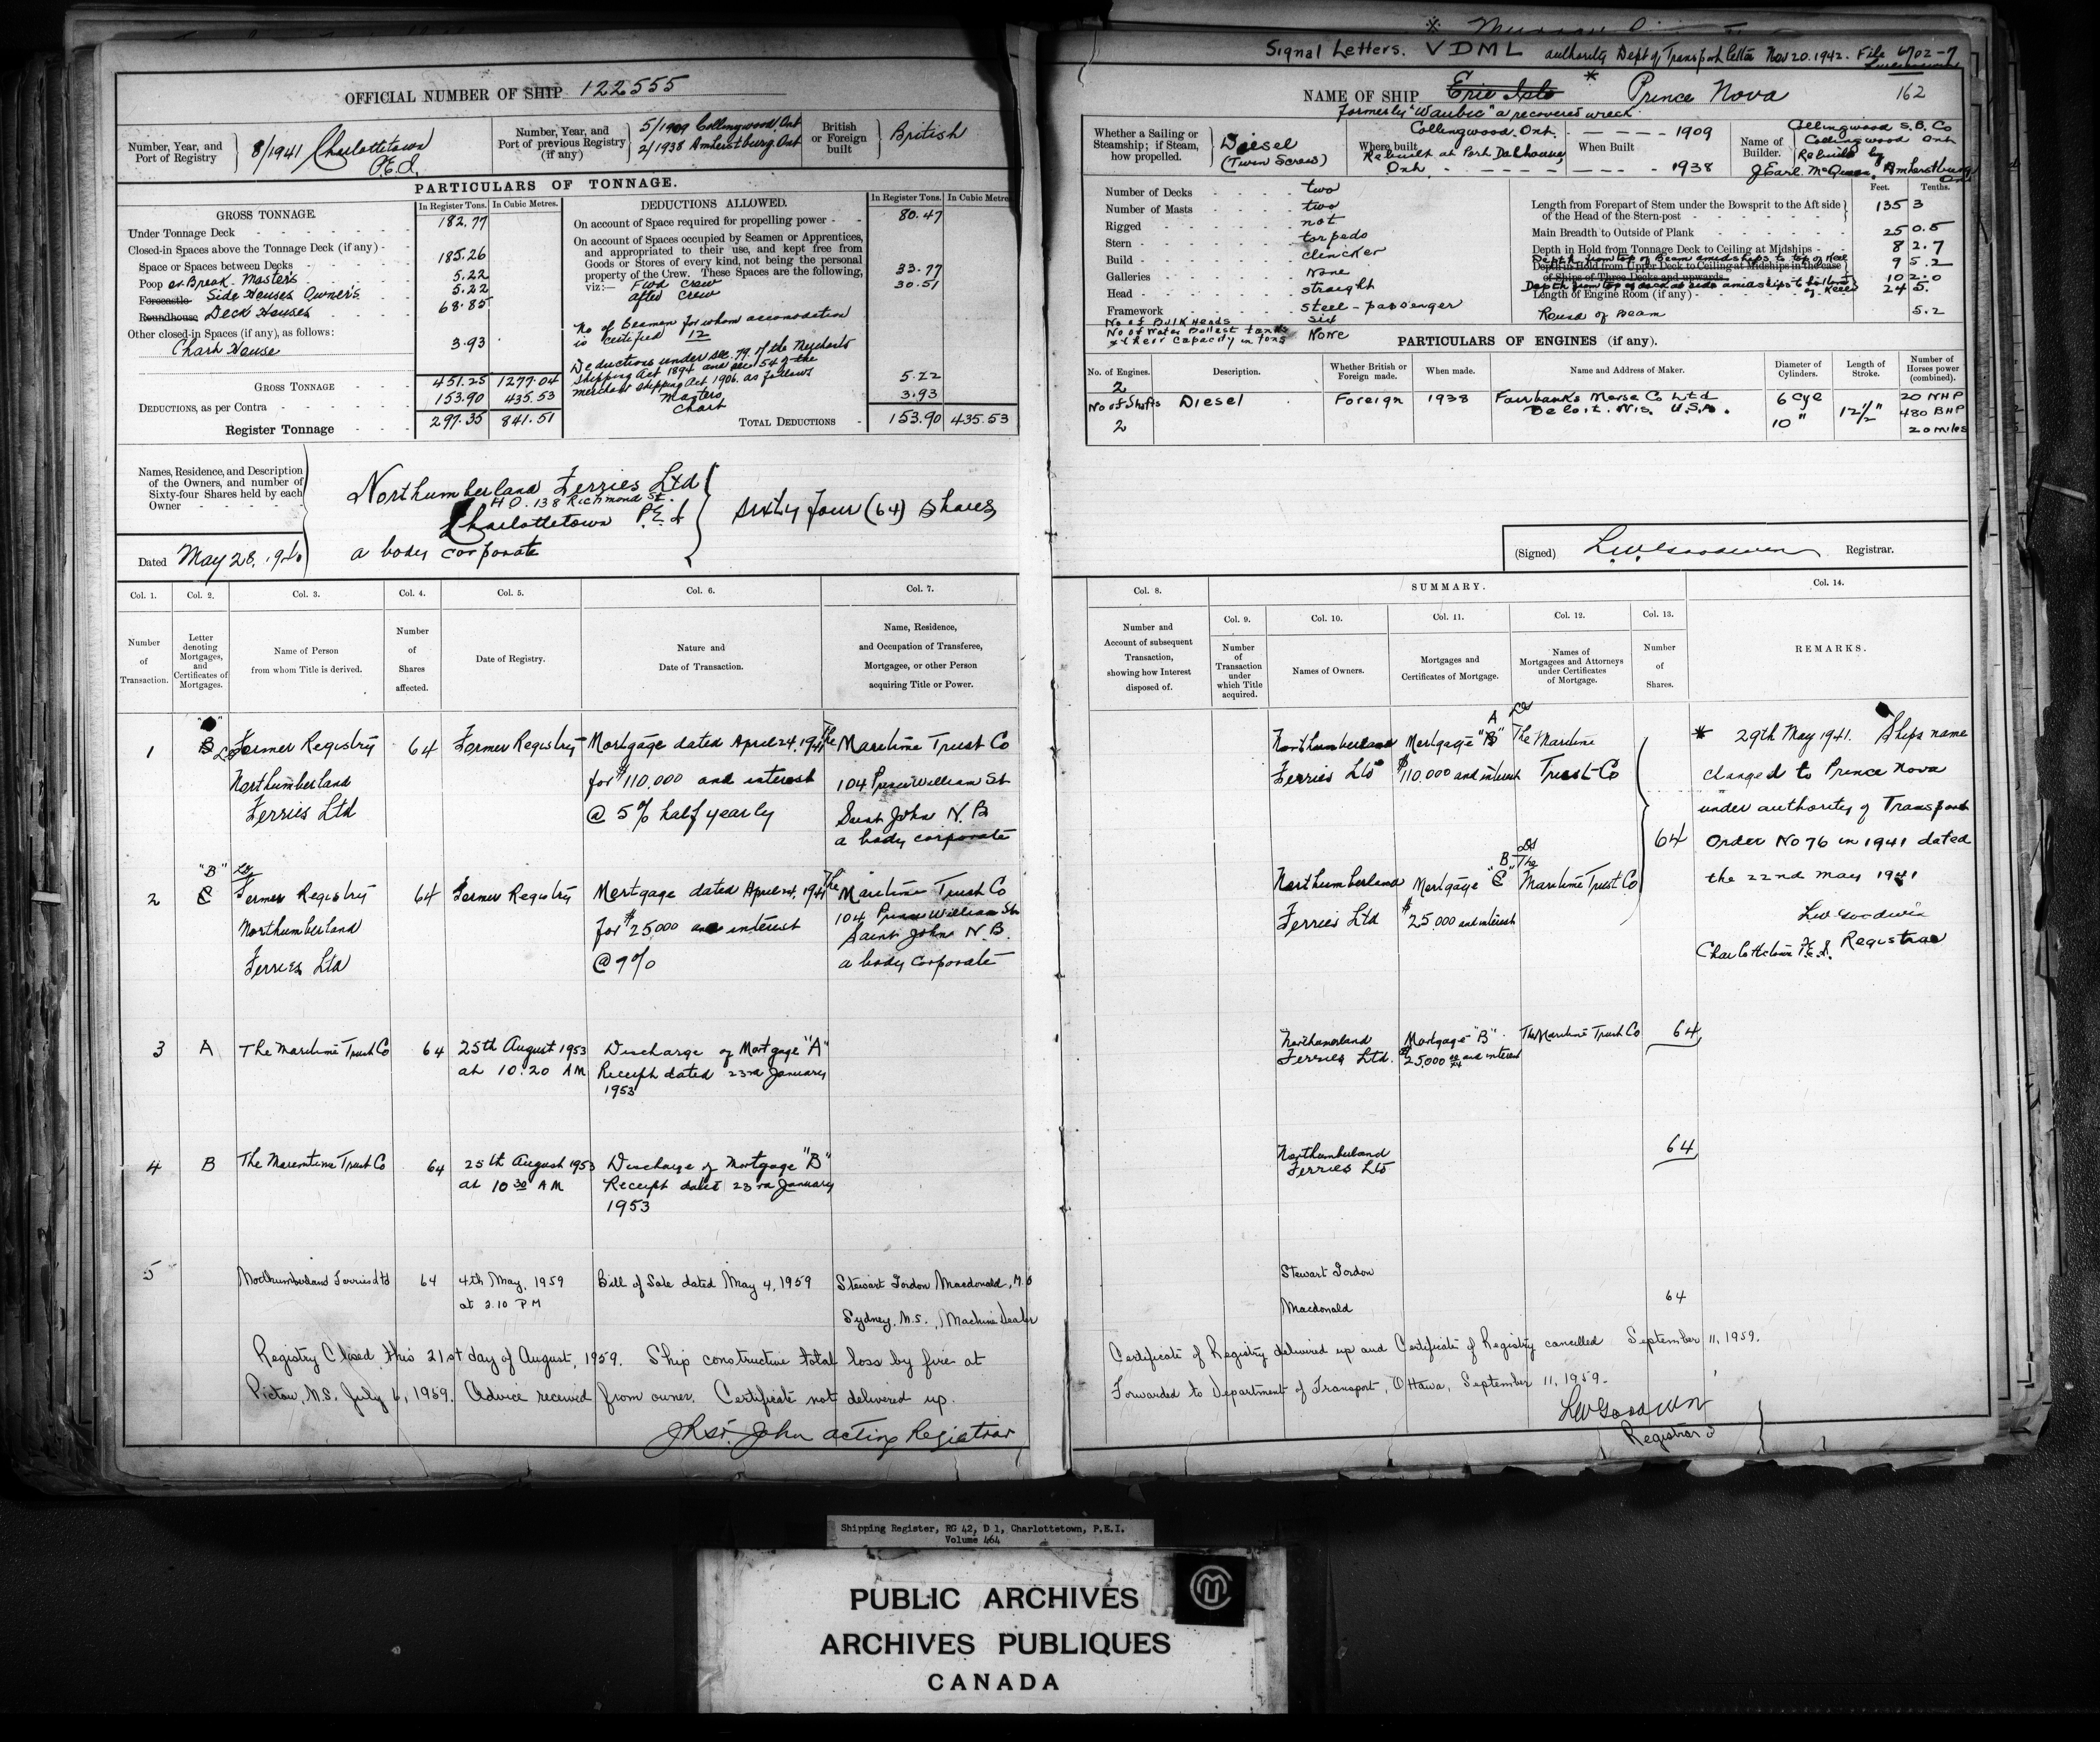 Signal Letters. VDML authority Dept of Transport letter Nov 20. 1942. File 6702-7
OFFICIAL NUMBER OF SHIP 122555
Number, Year, and Port of Registry
8/1941 Charlottetown P.E.I.
Number, Year, and Port of previous Registry (if any)
5/1909 Collingwood, Ont
2/1938 Amherstburg, Ont
British or Foreign built
British
PARTICULARS OF TONNAGE.
GROSS TONNAGE.
In Register Tons. In Cubic Metres.
Under Tonnage Deck 182.77
Closed-in Spaces above the Tonnage Deck (if any)
Space or Spaces between Decks 185.26
Poop or Break. Master's 5.22
Forecastle Side Houses Owner's 5.22
Roundhouse Deck Houses 68.85
Other closed-in Spaces (if any), as follows:
Chart House 3.93
GROSS TONNAGE 451.25 1277.04
DEDUCTIONS, as per Contra 153.90 435.53
Register Tonnage 297.35 841.51
DEDUCTIONS ALLOWED.
In Register Tons. In Cubic Metres
On account of Space required for propelling power 80.47
On account of Spaces occupied by Seamen or Apprentices,
and appropriated to their use, and kept free from
Goods or Stores of every kind, not being the personal
property of the Crew. These Spaces are the following,
viz:— Fwd Crew 33.77
After Crew 30.51
No of Seamen for whom accomodation
is certified 12
Deductions under sec. 79 of the Merchants
Shipping Act 1894 and sec 54 of the
Merchant Shipping Act, 1906. as follows
Masters 5.22
Chart 3.93
TOTAL DEDUCTIONS 153.90 435.53
Names, Residence, and Description
of the Owners, and number of
Sixty-four Shares held by each
Owner
Northumberland Ferries Ltd
H.O. 138 Richmond St.
Charlottetown P.E.I.
a body corporate
Sixty four (64) Shares
Dated May 28. 1941
NAME OF SHIP Erie Isle * Prince Nova 162
Formerly "Waubic" a recovered wreck
Whether a Sailing or Steamship; if Steam, how propelled.
Diesel
(Twin Screw)
Where built
Collingwood. Ont.
Rebuilt at Port Dalhousie, Ont
When Built
1909
1938
Name of Builder.
Collingwood S.B. Co
Collingwood Ont
Rebuilt by
J Earl McQueen, Amherstburg Ont
Number of Decks two
Number of Masts two
Rigged not
Stern torpedo
Build clincker
Galleries None
Head straight
Framework steel - passenger
No of Bulk Heads six
No of Water Ballast tanks
& their capacity in tons None
Feet. Tenths.
Length from Forepart of Stem under the Bowsprit to the Aft side
of the Head of the Stern-post 135 3
Main Breadth to Outside of Plank 25 0.5
Depth in Hold from Tonnage Deck to Ceiling at Midships 8 2.7
Depth from top of Beam amidships to top of Keel 9 5.2
Depth in Hold from Upper Deck to Ceiling at Midships in the case
of Ships of Three Decks and upwards
Depth from top of deck at side amidships to bottom of Keel 10 2.0
Length of Engine Room (if any) 24 5.
Round of Beam 5.2
PARTICULARS OF ENGINES (if any).
No. of Engines. Description. Whether British or Foreign made. When made. Name and Address of Maker. Diameter of Cylinders. Length of Stroke. Number of Horses power (combined).
2
No of Shafts
2
Diesel Foreign 1938 Fairbanks Morse Co Ltd
Beloit. Wis. U.S.A.
6 Cyl
10"
12 1/2"
20 NHP
480 BHP
20 miles
(Signed) LW Goodwin Registrar.
Col. 1. Col. 2. Col. 3. Col. 4. Col. 5. Col. 6. Col. 7.
Number of Transaction.
Letter denoting Mortgages, and Certificates of Mortgages.
Name of Person from whom Title is derived.
Number of Shares affected.
Date of Registry.
Nature and Date of Transaction.
Name, Residence, and Occupation of Transferee, Mortgagee, or other Person acquiring Title or Power.
1 "A" B Former Registry 64 Former Registry Mortgage dated April 24, 1941 The Maritime Trust Co
Northumberland for $110,000 and interest 104 Prince William St
Ferries Ltd @ 5% half yearly Saint John N.B
a body corporate
2 "B" C Former Registry 64 Former Registry Mortgage dated April 24, 1941 The Maritime Trust Co
Northumberland for $25000 and interest 104 Prince William St
Ferries Ltd @ 9% Saint John N.B.
a body corporate
3 A The Maritime Trust Co 64 25th August 1953 Discharge of Mortgage "A"
at 10:20 AM Receipt dated 23rd January
1953
4 B The Maremtime Trust Co 64 25th August 1953 Discharge of Mortgage "B"
at 10 30 AM Receipt dated 23rd January
1953
5 Northumberland Ferries Ltd 64 4th May, 1959 Bill of Sale dated May 4, 1959 Stewart Gordon Macdonald,
at 2.10 PM Sydney, N.S., Machine Dealer
Registry Closed this 21st day of August, 1959. Ship constructive total loss by fire at
Pictou, N.S. July 6, 1959. Advice received from owner. Certificate not delivered up.
John acting Registrar
Col. 8. SUMMARY. Col. 14.
Col. 9. Col. 10. Col. 11. Col. 12. Col. 13.
Number and Account of subsequent Transaction, showing how Interest disposed of.
Number of Transaction under which Title acquired.
Names of Owners.
Mortgages and Certificates of Mortgage.
Names of Mortgagees and Attorneys under Certificates of Mortgage.
Number of Shares.
REMARKS.
Northumberland Mortgage "B" A The Maritime
Ferries Ltd $110,000 and interest Trust Co
64
Northumberland Mortgage "C" B The Maritime Trust Co
Ferries Ltd $25,000 and interest
* 29th May 1941. Ships name
changed to Prince Nova
under authority of Transport
Order No 76 in 1941 dated
the 22nd May 1941
LW Goodwin
Charlottetown P.E.I. Registrar
Northumerland Mortgage "B" The Maritime Trust Co 64
Ferries Ltd. $25,000 and interest
Northumberland 64
Ferries Ltd
Stewart Gordon
Macdonald 64
Certificate of Registry delivered up and Certificate of Registry cancelled September 11, 1959.
Forwarded to Department of Transport, Ottawa, September 11, 1959.
LW Goodwin
Registrar
Shipping Register, RG 42, D 1, Charlottetown, P.E.I.
Volume 464
PUBLIC ARCHIVES
ARCHIVES PUBLIQUES
CANADA